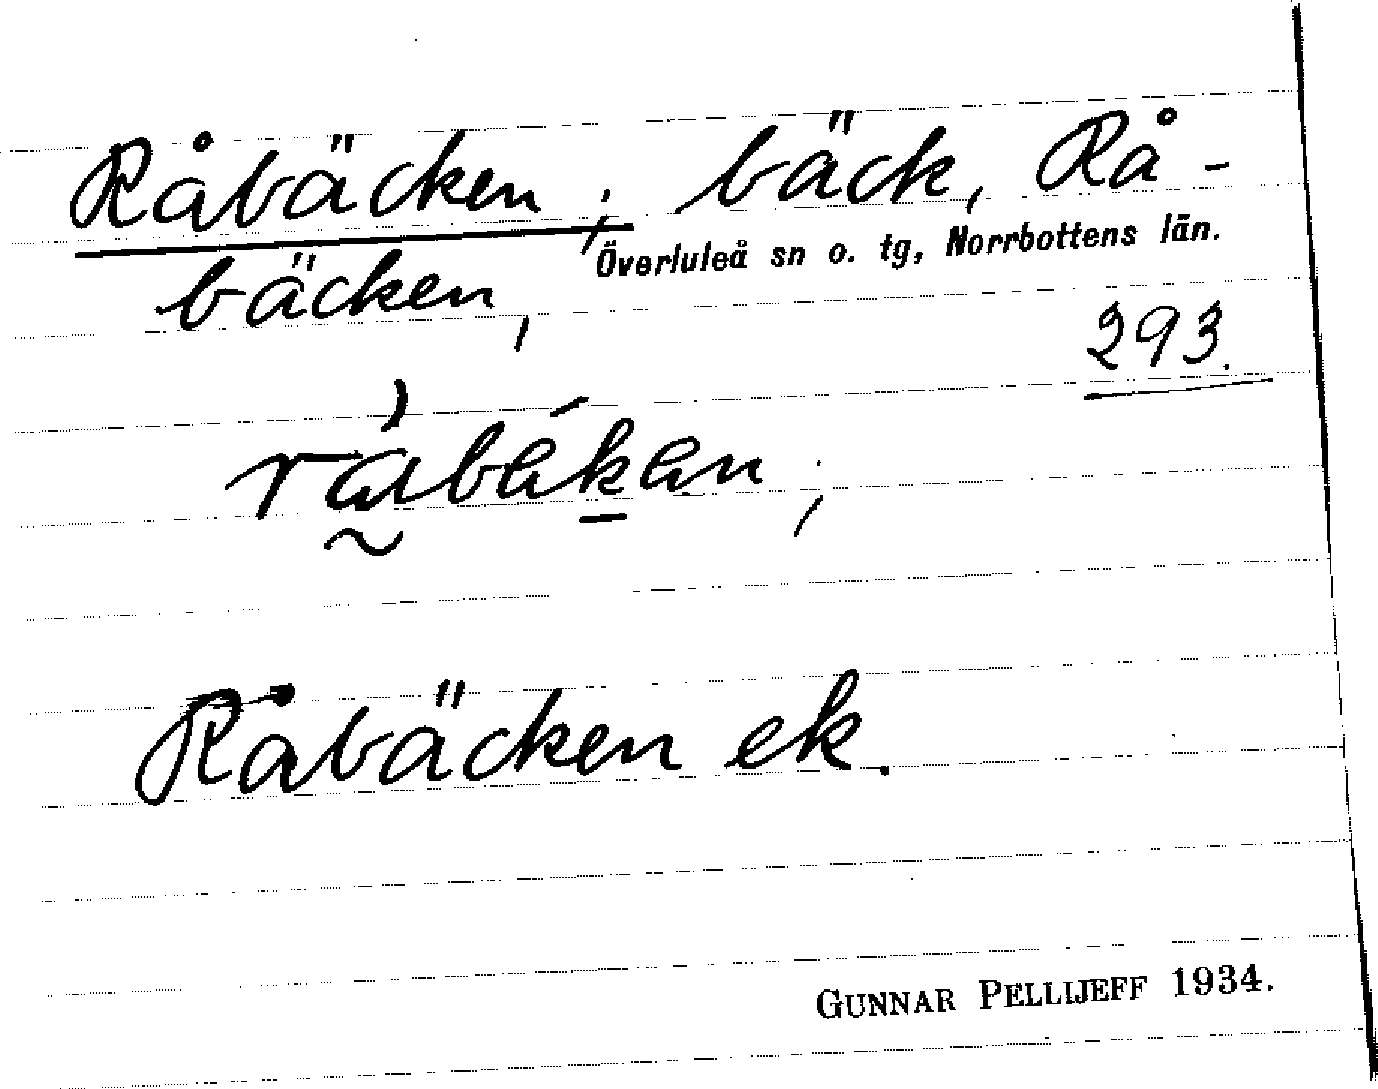 Råbäcken; bäck, Rå-
Överluleå sn o. tg, Norrbottens län.
bäcken,
293.
råbäkan;
Råbäcken ek.
GUNNAR PELLIJEFF 1934.